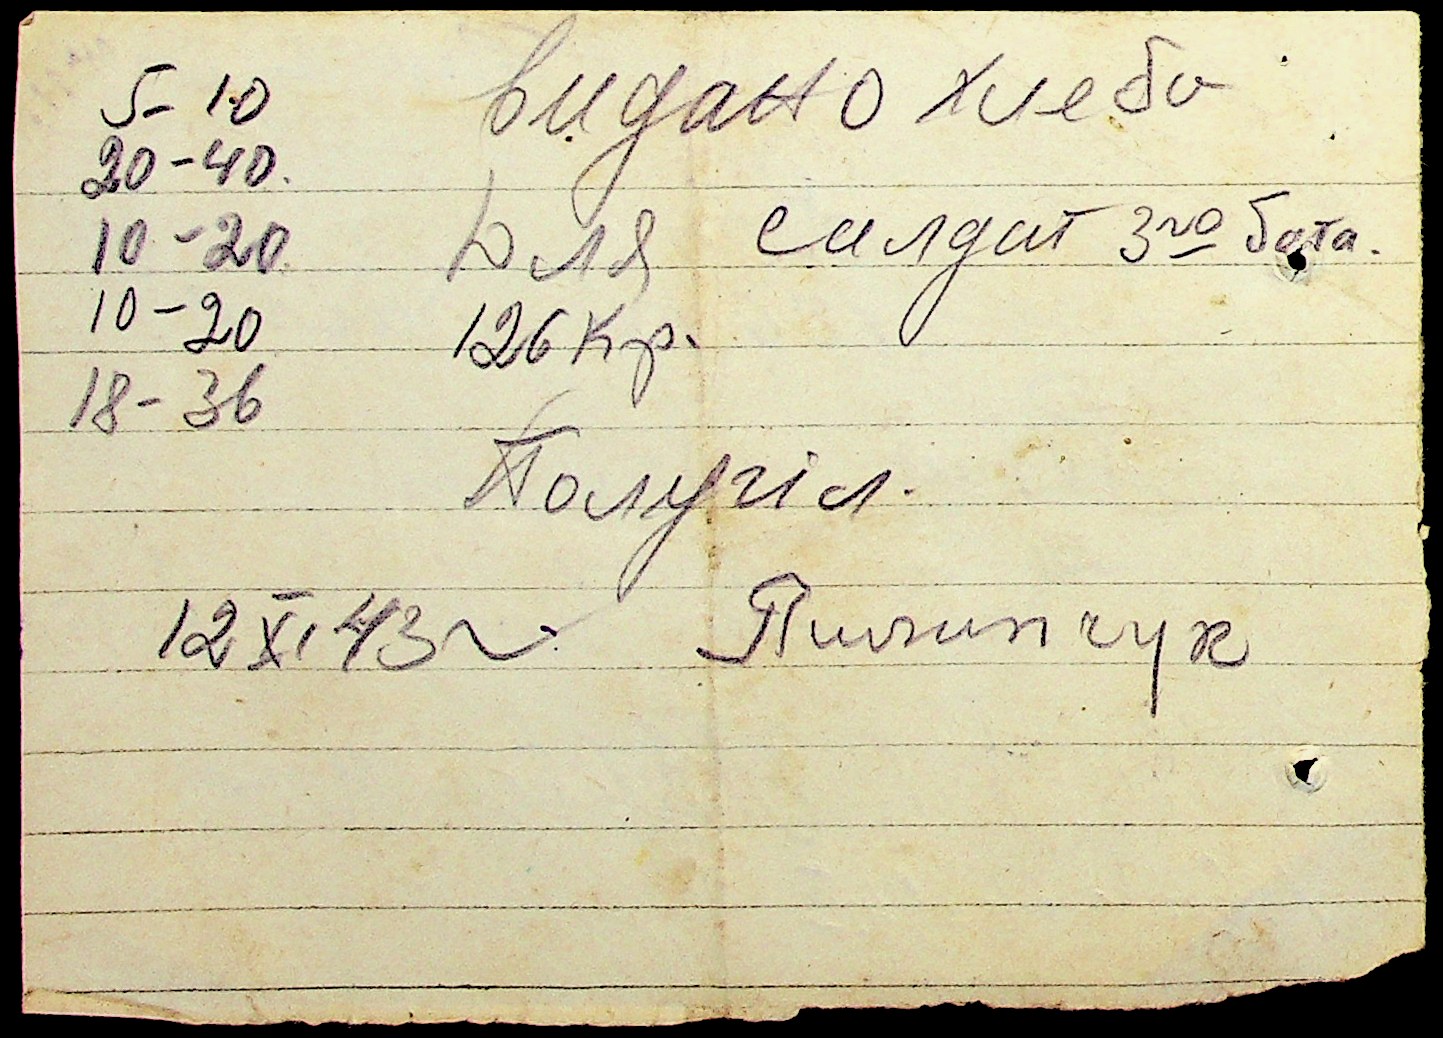 5-10
20-40.
10-20
10-20
18-36
видано хлеба
Для салдат 3го бата.
126 кр.
Получіл.
12 XI 43 г. Пилипчук